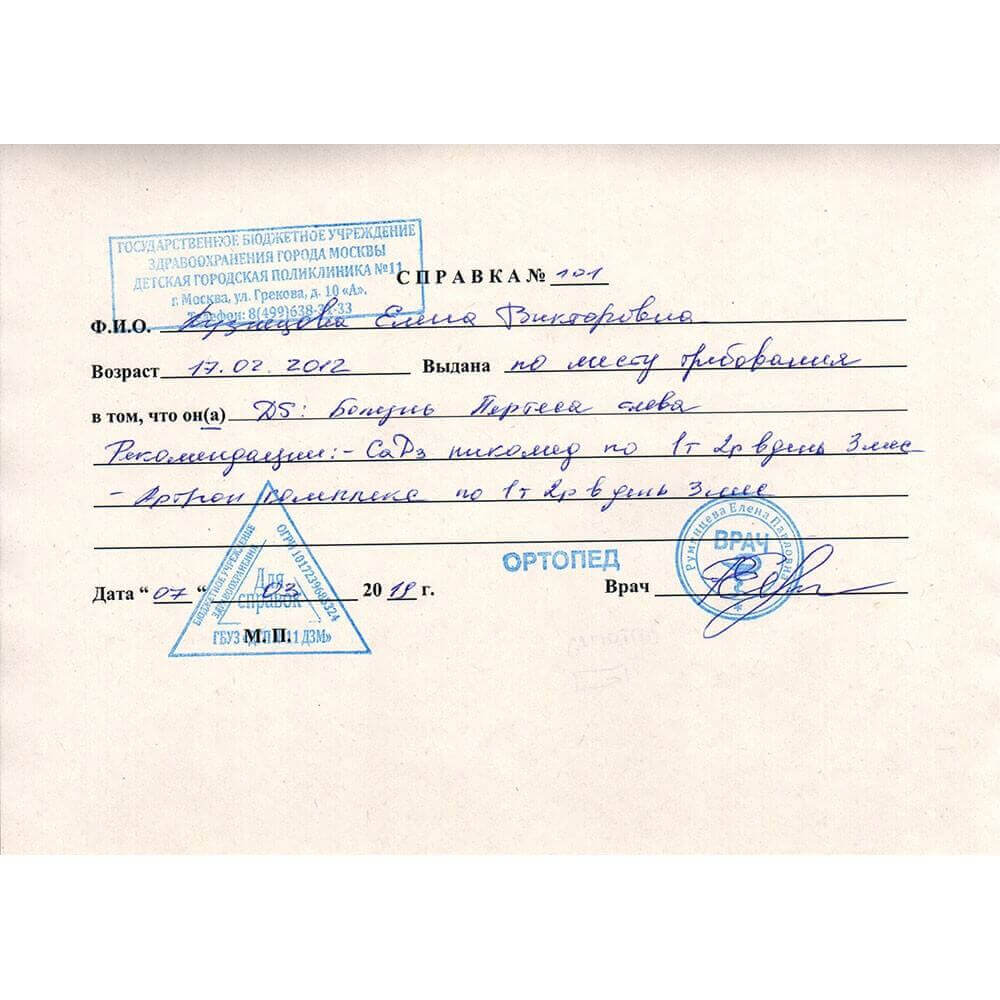 ГОСУДАРСТВЕННОЕ БЮДЖЕТНОЕ УЧРЕЖДЕНИЕ
ЗДРАВООХРАНЕНИЯ ГОРОДА МОСКВЫ
ДЕТСКАЯ ГОРОДСКАЯ ПОЛИКЛИНИКА №11
г. Москва, ул. Грекова, д. 10 «А».
Телефон: 8(499)638-33
СПРАВКА № 101
Ф.И.О. Кузнецова Елена Викторовна
Возраст 17.02.2012 Выдана по месту требования
в том, что он(а) DS: Болезнь Пертеса слева
Рекомендации: - СаDз никомед по 1т 2р в день 3 мес
- Артрон комплекс по 1т 2р в день 3 мес
ОРТОПЕД
Дата “07“ 03 2019 г. Врач
М. П.
БЮДЖЕТНОЕ УЧРЕЖДЕНИЕ
ЗДРАВООХРАНЕНИЯ
ОГРН
Для
справок
ГБУЗ 11 ДЗМ»
Румянцева Елена Павловна
ВРАЧ